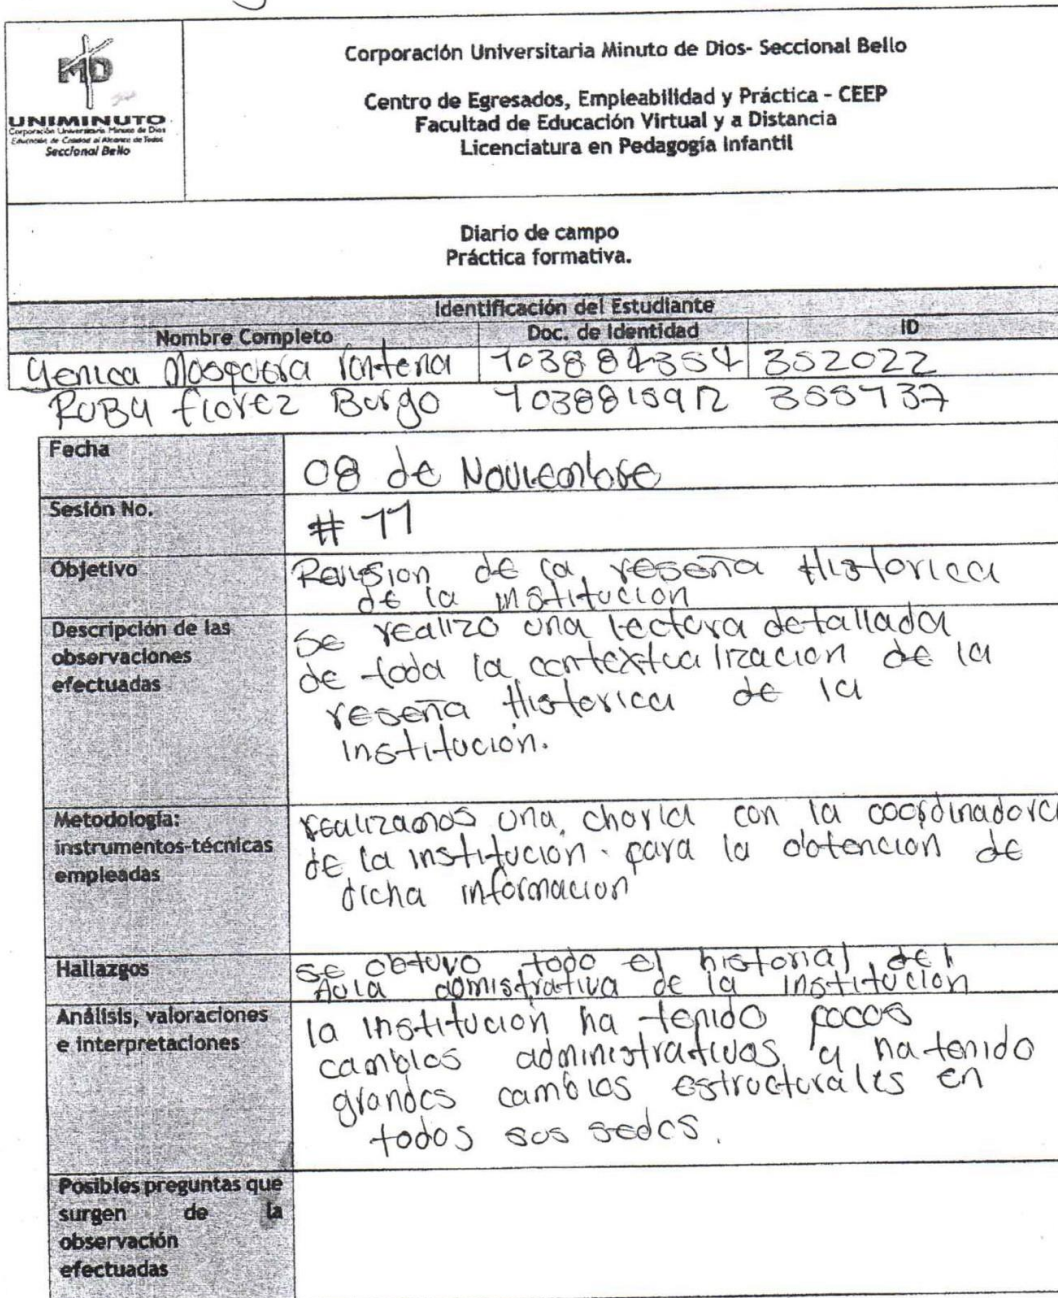 MD
UNIMINUTO
Corporación Universitaria Minuto de Dios
Educación de Calidad al Alcance de Todos
Seccional Bello
Corporación Universitaria Minuto de Dios- Seccional Bello
Centro de Egresados, Empleabilidad y Práctica - CEEP
Facultad de Educación Virtual y a Distancia
Licenciatura en Pedagogía Infantil
Diario de campo
Práctica formativa.
Identificación del Estudiante
Nombre Completo Doc. de Identidad ID
Yenica Mosquera 352022
RUBY florez Burgo
Fecha
08 de Noviembre
Sesión No.
# 11
Objetivo
Revision de la reseña Historica
de la institucion
Descripción de las
observaciones
efectuadas
Se realizo una lectura detallada
de toda la contextualizacion de la
reseña Historica de la
institución.
Metodología:
instrumentos-técnicas
empleadas
realizamos una charla con la coordinadora
de la institucion para la obtencion de
dicha informacion
Hallazgos
se obtuvo todo el historial del
Aula admistrativa de la institución
Análisis, valoraciones
e interpretaciones
la institución ha tenido pocos
cambios administrativos y ha tenido
grandes cambios estructurales en
todos sus sedes.
Posibles preguntas que
surgen de la
observación
efectuadas